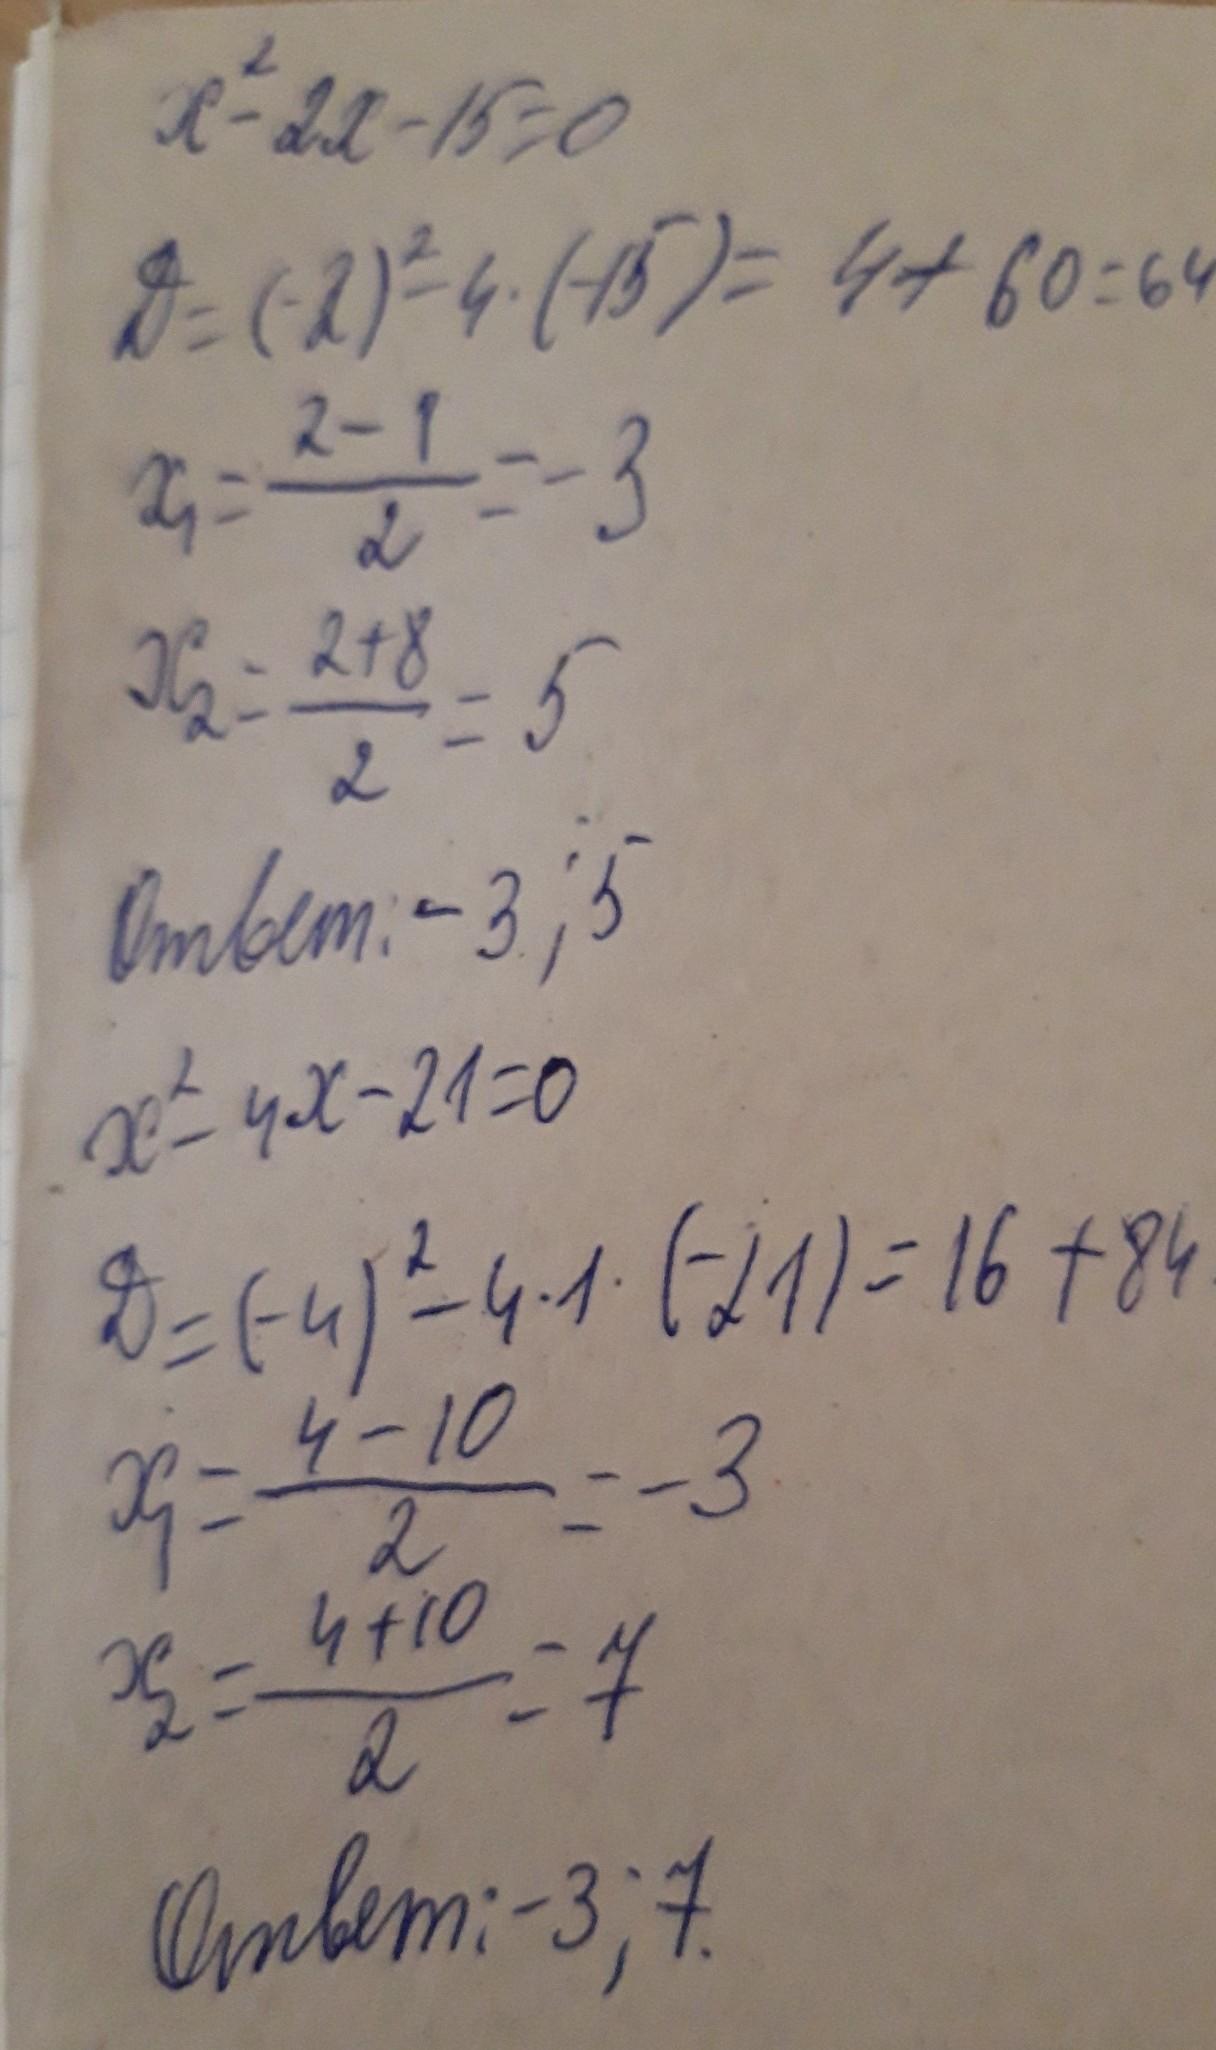 x² - 2x - 15 = 0
D = (-2)² - 4 · (-15) = 4 + 60 = 64
x₁ = (2 - 8)/2 = -3
x₂ = (2 + 8)/2 = 5
Ответ: -3; 5
x² - 4x - 21 = 0
D = (-4)² - 4 · 1 · (-21) = 16 + 84
x₁ = (4 - 10)/2 = -3
x₂ = (4 + 10)/2 = 7
Ответ: -3; 7.